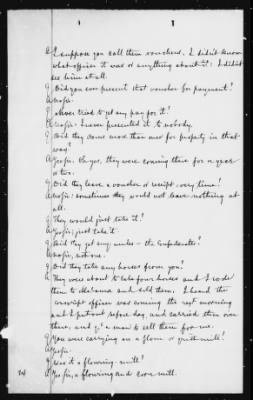 A. I suppose you call them vouchers. I didn't know
what officer it was or anything about it. I didn't
see him at all.
Q. Did you ever present that voucher for payment?
A. No sir.
Q. Never tried to get any pay for it?
A. No sir: I never presented it to nobody.
Q. Did they come more than once for property in that
way?
A. Yes sir. Oh yes, they were coming there for a year
or two.
Q. Did they leave a voucher or receipt every time?
A. No sir: sometimes they would not leave nothing at
all.
Q. They would just take it?
A. Yes sir; just take it.
Q. Did they get any mules - the Confederates?
A. No sir, not one.
Q. Did they take any horses from you?
A. They were about to take four horses and I rode
them to Alabama and sold them. I heard the
conscript officer was coming the next morning
and I put out before day, and carried them over
there, and got a man to sell them for me.
Q. You were carrying on a flour or grist mill?
A. Yes sir.
Q. Was it a flouring-mill?
A. Yes sir, a flouring and corn mill.